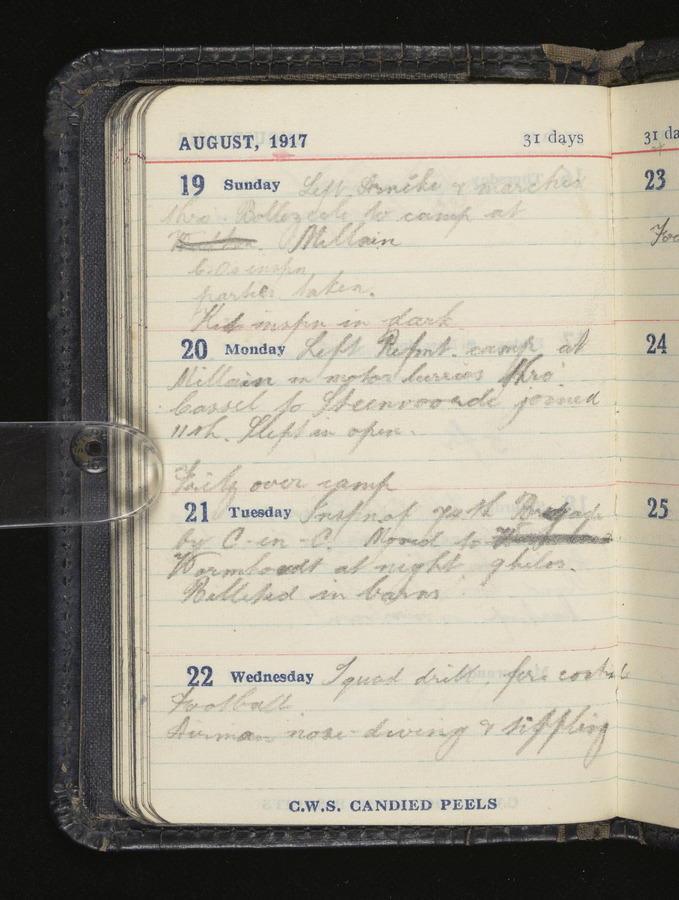 AUGUST, 1917 31 days
19 Sunday Left Arnèke & marched
thro Bollezeele to camp at
Millain
C.O's inspn
parties taken.
Kit inspn in dark
20 Monday Left Rgmt. camp at
Millain in motor lurries thro'
Cassel to Steenvoorde joined
11th. Slept in open.
Fritz over camp
21 Tuesday Inspn of 74th Brigade
by C-in-C. Moved to
Wormhoudt at night 9 kilos.
Billeted in barns
22 Wednesday Squad drill, fire control
Football
Airman nose-diving &
C.W.S. CANDIED PEELS
31 da
23
24
25